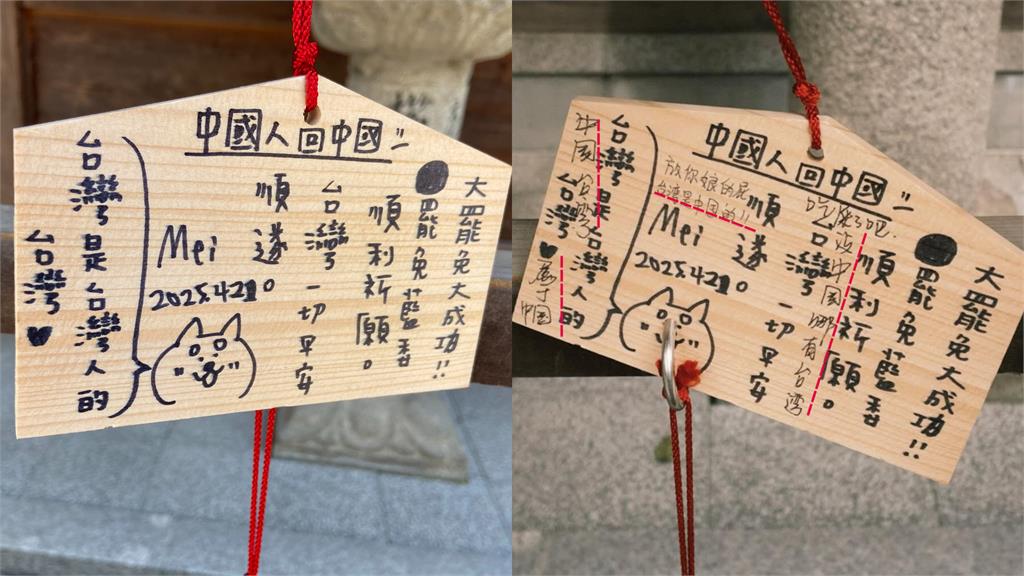 中國人回中國
大罷免大成功!!
罷免藍
順利祈願。
台灣
一切早安
順遂。
Mei
2025.4.21
台灣是台灣人的
台灣♥
中國人回中國
大罷免大成功!!
罷免藍
順利祈願。
吃屎了吧.
没中国哪有台湾
台灣
一切早安
順遂。
放你娘的屁
台湾是中国的!!
Mei
2025.4.21
台灣是台灣人的
中国台湾
台灣♥
属于中国